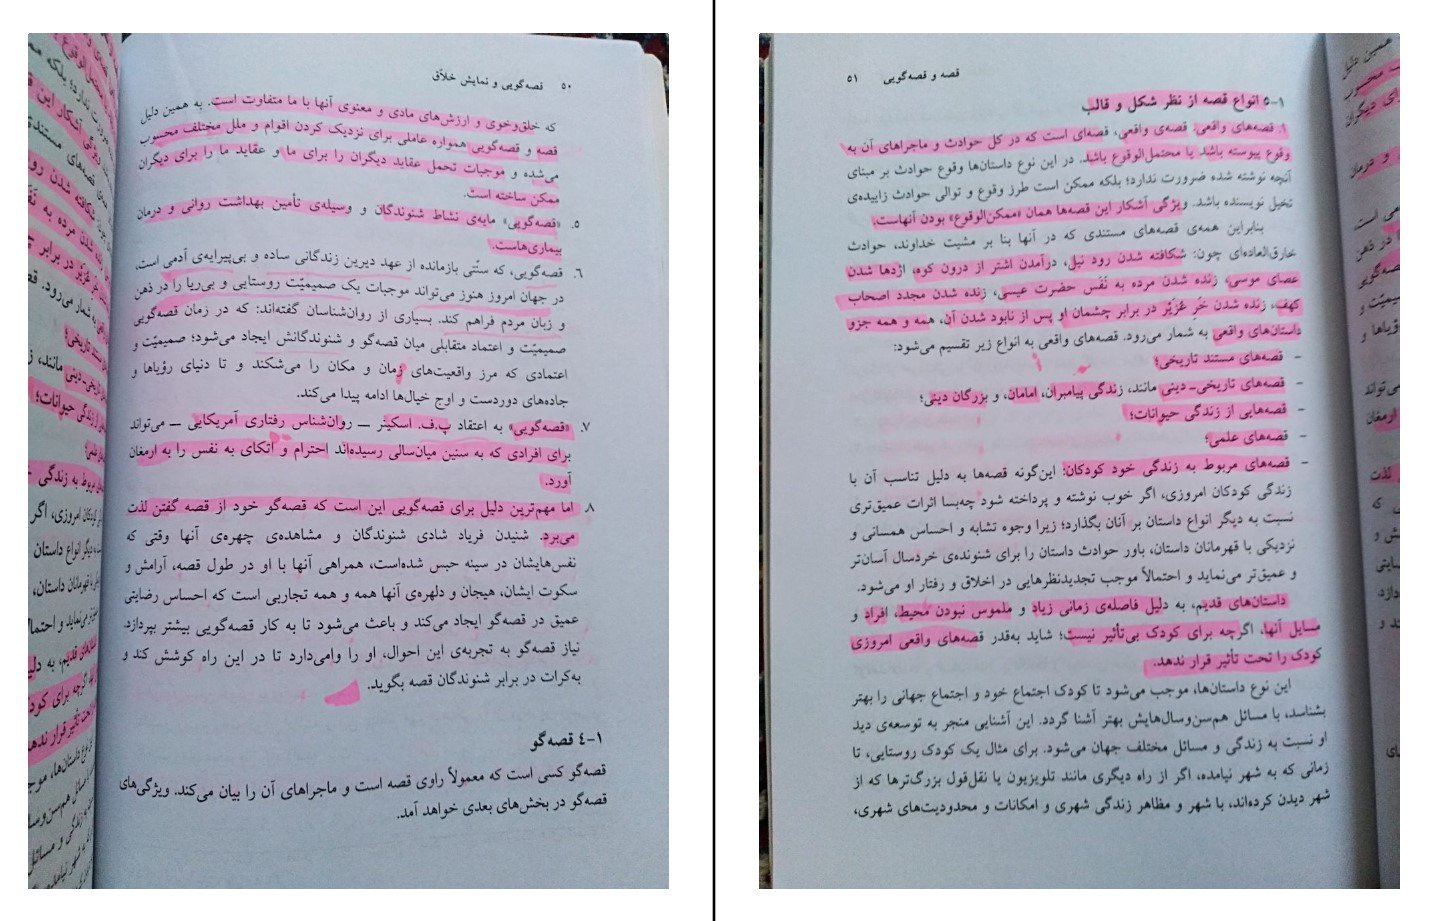 ۵۰ قصه‌گویی و نمایش خلاّق
که خلق‌وخوی و ارزش‌های مادی و معنوی آنها با ما متفاوت است. به همین دلیل
قصه و قصه‌گویی همواره عاملی برای نزدیک کردن اقوام و ملل مختلف محسوب
می‌شده و موجبات تحمل عقاید دیگران را برای ما و عقاید ما را برای دیگران
ممکن ساخته است.
۵. «قصه‌گویی» مایه‌ی نشاط شنوندگان و وسیله‌ی تأمین بهداشت روانی و درمان
بیماری‌هاست.
۶. قصه‌گویی، که سنّتی بازمانده از عهد دیرین زندگانی ساده و بی‌پیرایه‌ی آدمی است،
در جهان امروز هنوز می‌تواند موجبات یک صمیمیّت روستایی و بی‌ریا را در ذهن
و زبان مردم فراهم کند. بسیاری از روان‌شناسان گفته‌اند: که در زمان قصه‌گویی
صمیمیّت و اعتماد متقابلی میان قصه‌گو و شنوندگانش ایجاد می‌شود؛ صمیمیّت و
اعتمادی که مرز واقعیت‌های زمان و مکان را می‌شکند و تا دنیای رؤیاها و
جاده‌های دوردست و اوج خیال‌ها ادامه پیدا می‌کند.
۷. «قصه‌گویی» به اعتقاد پ.ف. اسکینر ــ روان‌شناس رفتاری آمریکایی ــ می‌تواند
برای افرادی که به سنین میان‌سالی رسیده‌اند احترام و اتکای به نفس را به ارمغان
آورد.
۸. اما مهم‌ترین دلیل برای قصه‌گویی این است که قصه‌گو خود از قصه گفتن لذت
می‌برد. شنیدن فریاد شادی شنوندگان و مشاهده‌ی چهره‌ی آنها وقتی که
نفس‌هایشان در سینه حبس شده‌است، همراهی آنها با او در طول قصه، آرامش و
سکوت ایشان، هیجان و دلهره‌ی آنها همه و همه تجاربی است که احساس رضایتی
عمیق در قصه‌گو ایجاد می‌کند و باعث می‌شود تا به کار قصه‌گویی بیشتر بپردازد.
نیاز قصه‌گو به تجربه‌ی این احوال، او را وامی‌دارد تا در این راه کوشش کند و
به‌کرات در برابر شنوندگان قصه بگوید.
۱-۴ قصه‌گو
قصه‌گو کسی است که معمولاً راوی قصه است و ماجراهای آن را بیان می‌کند. ویژگی‌های
قصه‌گو در بخش‌های بعدی خواهد آمد.
قصه و قصه‌گویی ۵۱
۱-۵ انواع قصه از نظر شکل و قالب
۱. قصه‌های واقعی: قصه‌ی واقعی، قصه‌ای است که در کل حوادث و ماجراهای آن به
وقوع پیوسته باشد یا محتمل‌الوقوع باشد. در این نوع داستان‌ها وقوع حوادث بر مبنای
آنچه نوشته شده ضرورت ندارد؛ بلکه ممکن است طرز وقوع و توالی حوادث زاییده‌ی
تخیل نویسنده باشد. ویژگی آشکار این قصه‌ها همان «ممکن‌الوقوع» بودن آنهاست.
بنابراین همه‌ی قصه‌های مستندی که در آنها بنا بر مشیت خداوند، حوادث
خارق‌العاده‌ای چون: شکافته شدن رود نیل، درآمدن اشتر از درون کوه، اژدها شدن
عصای موسی، زنده شدن مرده به نَفَس حضرت عیسی، زنده شدن مجدد اصحاب
کهف، زنده شدن خَر عُزَیْر در برابر چشمان او پس از نابود شدن آن، همه و همه جزو
داستان‌های واقعی به شمار می‌رود. قصه‌های واقعی به انواع زیر تقسیم می‌شود:
- قصه‌های مستند تاریخی؛
- قصه‌های تاریخی-دینی مانند، زندگی پیامبران، امامان، و بزرگان دینی؛
- قصه‌هایی از زندگی حیوانات؛
- قصه‌های علمی؛
- قصه‌های مربوط به زندگی خود کودکان: این‌گونه قصه‌ها به دلیل تناسب آن با
زندگی کودکان امروزی، اگر خوب نوشته و پرداخته شود چه‌بسا اثرات عمیق‌تری
نسبت به دیگر انواع داستان بر آنان بگذارد؛ زیرا وجوه تشابه و احساس همسانی و
نزدیکی با قهرمانان داستان، باور حوادث داستان را برای شنونده‌ی خردسال آسان‌تر
و عمیق‌تر می‌نماید و احتمالاً موجب تجدیدنظرهایی در اخلاق و رفتار او می‌شود.
داستان‌های قدیم، به دلیل فاصله‌ی زمانی زیاد و ملموس نبودن محیط، افراد و
مسایل آنها، اگرچه برای کودک بی‌تأثیر نیست؛ شاید به‌قدر قصه‌های واقعی امروزی
کودک را تحت تأثیر قرار ندهد.
این نوع داستان‌ها، موجب می‌شود تا کودک اجتماع خود و اجتماع جهانی را بهتر
بشناسد، با مسائل هم‌سن‌وسال‌هایش بهتر آشنا گردد. این آشنایی منجر به توسعه‌ی دید
او نسبت به زندگی و مسائل مختلف جهان می‌شود. برای مثال یک کودک روستایی، تا
زمانی که به شهر نیامده، اگر از راه دیگری مانند تلویزیون یا نقل‌قول بزرگ‌ترها که از
شهر دیدن کرده‌اند، با شهر و مظاهر زندگی شهری و امکانات و محدودیت‌های شهری،